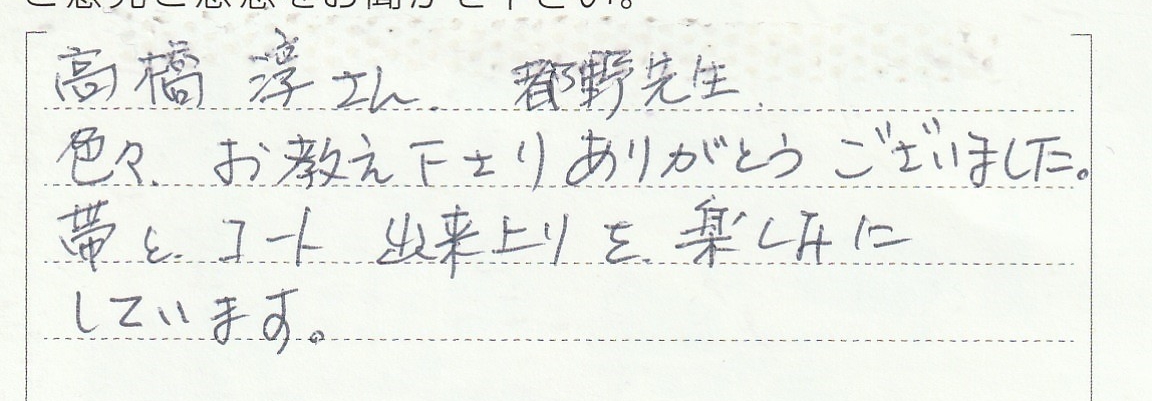 ご意見ご感想をお聞かせ下さい。
高橋 淳さん、都野先生、
色々、お教え下さりありがとうございました。
帯と、コート 出来上りを、楽しみに
しています。